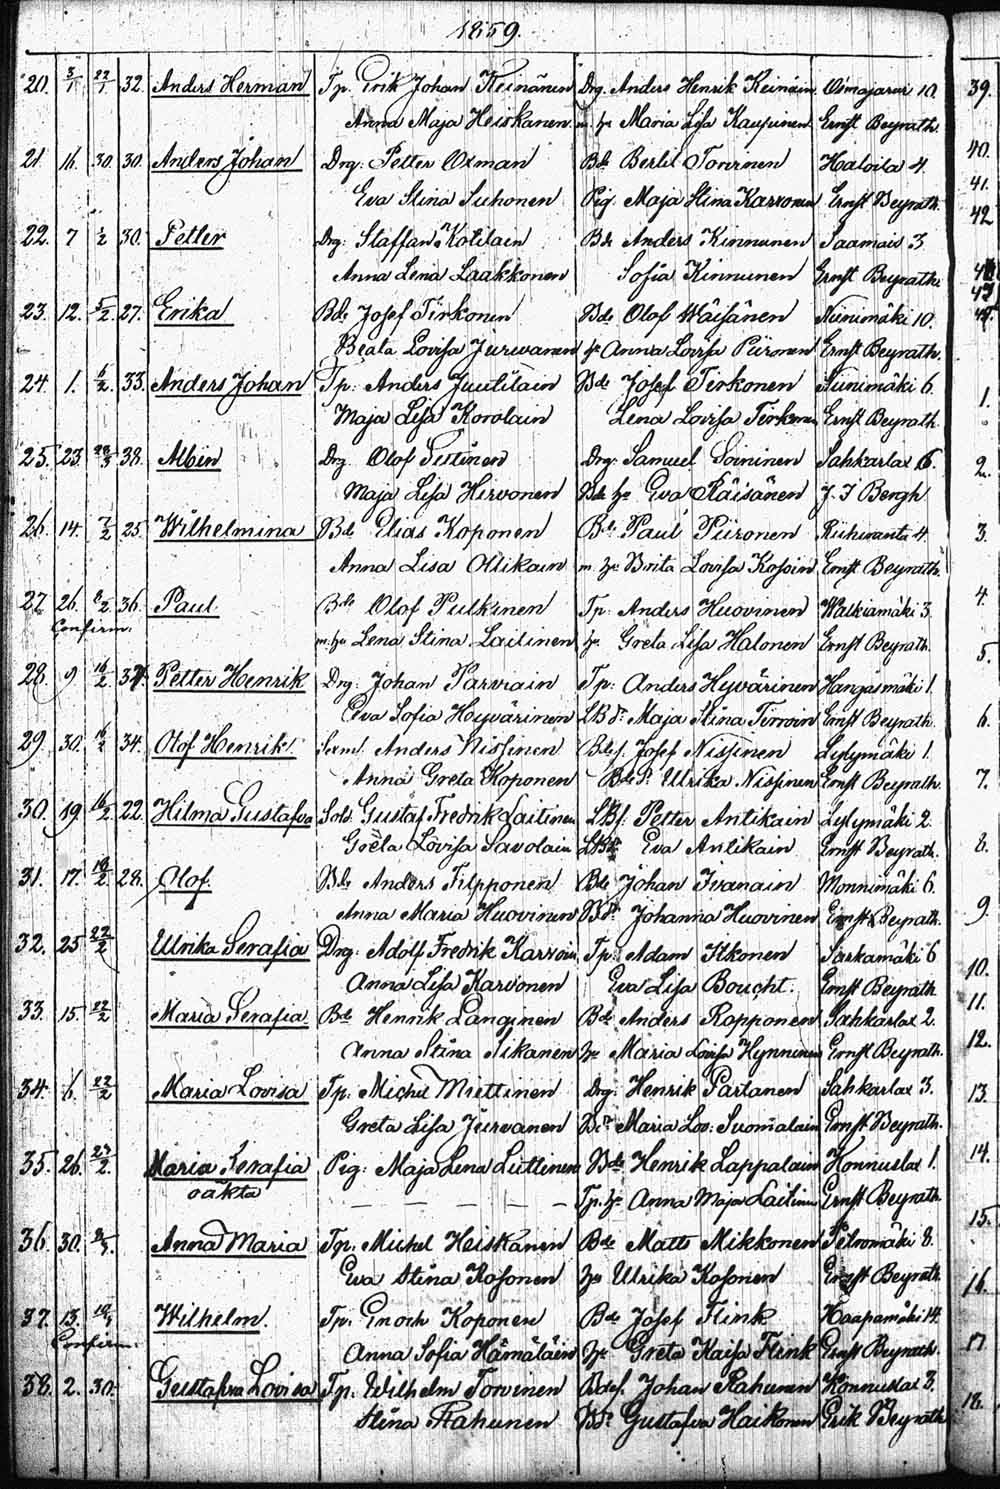 1859.
20. 3/1 22/1 32. Anders Herman Tp. Erik Johan Keinänen Drg. Anders Henrik Keinäin Oimajärvi 10. 39.
Anna Maja Heiskanen m. hu Maria Lisa Kaupinen Ernst Beyrath.
21. 16. 30. 30. Anders Johan Drg: Petter Oxman Bde Bertil Torvinen Halola 4. 40.
Eva Stina Suhonen Pig. Maja Stina Karvonen Ernst Beyrath. 41.
22. 7 1/2 30. Petter Drg: Staffan Kotilain Bde Anders Kinnunen Saamais 3. 42
Anna Lena Laakkonen Sofia Kinnunen Ernst Beyrath.
23. 12. 5/2. 27. Erika Bde Josef Tirkonen Bde Olof Wäisänen Niinimäki 10.
Beata Lovisa Jurvanen hu Anna Lovisa Piironen Ernst Beyrath.
24. 1. 6/2. 33. Anders Johan Tp: Anders Juutilain Bde Josef Tirkonen Niinimäki 6. 1.
Maja Lisa Korolain Lena Lovisa Tirkonen Ernst Beyrath.
25. 23. 38. Albin Drg Olof Testinen Drg: Samuel Soininen Sahkarlax 6. 2.
Maja Lisa Hirvonen Bde hu Eva Räisänen J. I Bergh
26. 14. 7/2 25. Wilhelmina Bde Elias Koponen Bde Paul Piironen Riihiranta 4. 3.
Anna Lisa Ollikain m. hu Brita Lovisa Kosoin Ernst Beyrath.
27. 26. 8/2 36. Paul Bde Olof Pulkinen Tp. Anders Huovinen Walkiamäki 3. 4.
Confirm: m. hu Lena Stina Laitinen hu Greta Lisa Halonen Ernst Beyrath.
28. 9. 16/2. Petter Henrik Drg: Johan Parviain Tp: Anders Hyvärinen Hangasmäki 1. 5.
Eva Sofia Hyvärinen Maja Stina Ernst Beyrath. 6.
29. 30. 16/2 34. Olof Henrik. Anders Nissinen Josef Nissinen Lylymäki 1.
Anna Greta Koponen Ulrika Nissinen Ernst Beyrath. 7.
30. 19. 16/2 22. Hilma Gustafva Sold: Gustaf Fredrik Laitinen LBf. Petter Antikain Lylymäki 2.
Greta Lovisa Savolain Eva Antikain Ernst Beyrath. 8.
31. 17. 19/2 28. Olof. Bde Anders Filpponen Bde Johan Ivanain Monnimäki 6.
Anna Maria Huovinen Johanna Huovinen Ernst Beyrath. 9.
32. 25 22/2 Ulrika Serafia Drg: Adolf Fredrik Karvoin Tp: Adam Itkonen Särkamäki 6
Anna Lisa Karvonen Eva Lisa Boucht. Ernst Beyrath 10.
33. 15. 22/2 Maria Serafia. Bde Henrik Länginen Bde Anders Ropponen Sahkarlax 2. 11.
Anna Stina Sikanen hu Maria Lovisa Hynninen Ernst Beyrath. 12.
34. 6. 22/2 Maria Lovisa Tp: Michel Miettinen Drg: Henrik Partanen Sahkarlax 3. 13.
Greta Lisa Jurvanen Maria Lov: Suomalain Ernst Beyrath.
35. 26. 27/2. Maria Serafia Pig: Maja Lena Luttinen Bde Henrik Lappalain Konnuslax 1. 14.
oäkta Tp. hu Anna Maja Laitinen Ernst Beyrath.
36. 30. Anna Maria Tp: Michel Heiskanen Bde Matts Mikkonen Petromäki 8. 15.
Eva Stina Kosonen hu Ulrika Kosonen Ernst Beyrath. 16.
37. 13. Wilhelm. Tp: Enoch Koponen Bde Josef Flink Haapamäki 14.
Confirm: Anna Sofia Hämäläin hu Greta Kaisa Flink Ernst Beyrath. 17
38. 2. 30. Gustafva Lovisa Tp: Wilhelm Torvinen Bdef. Johan Rahunen Konnuslax 3.
Stina Rahunen Gustafva Haikonen Erik Beyrath 18.